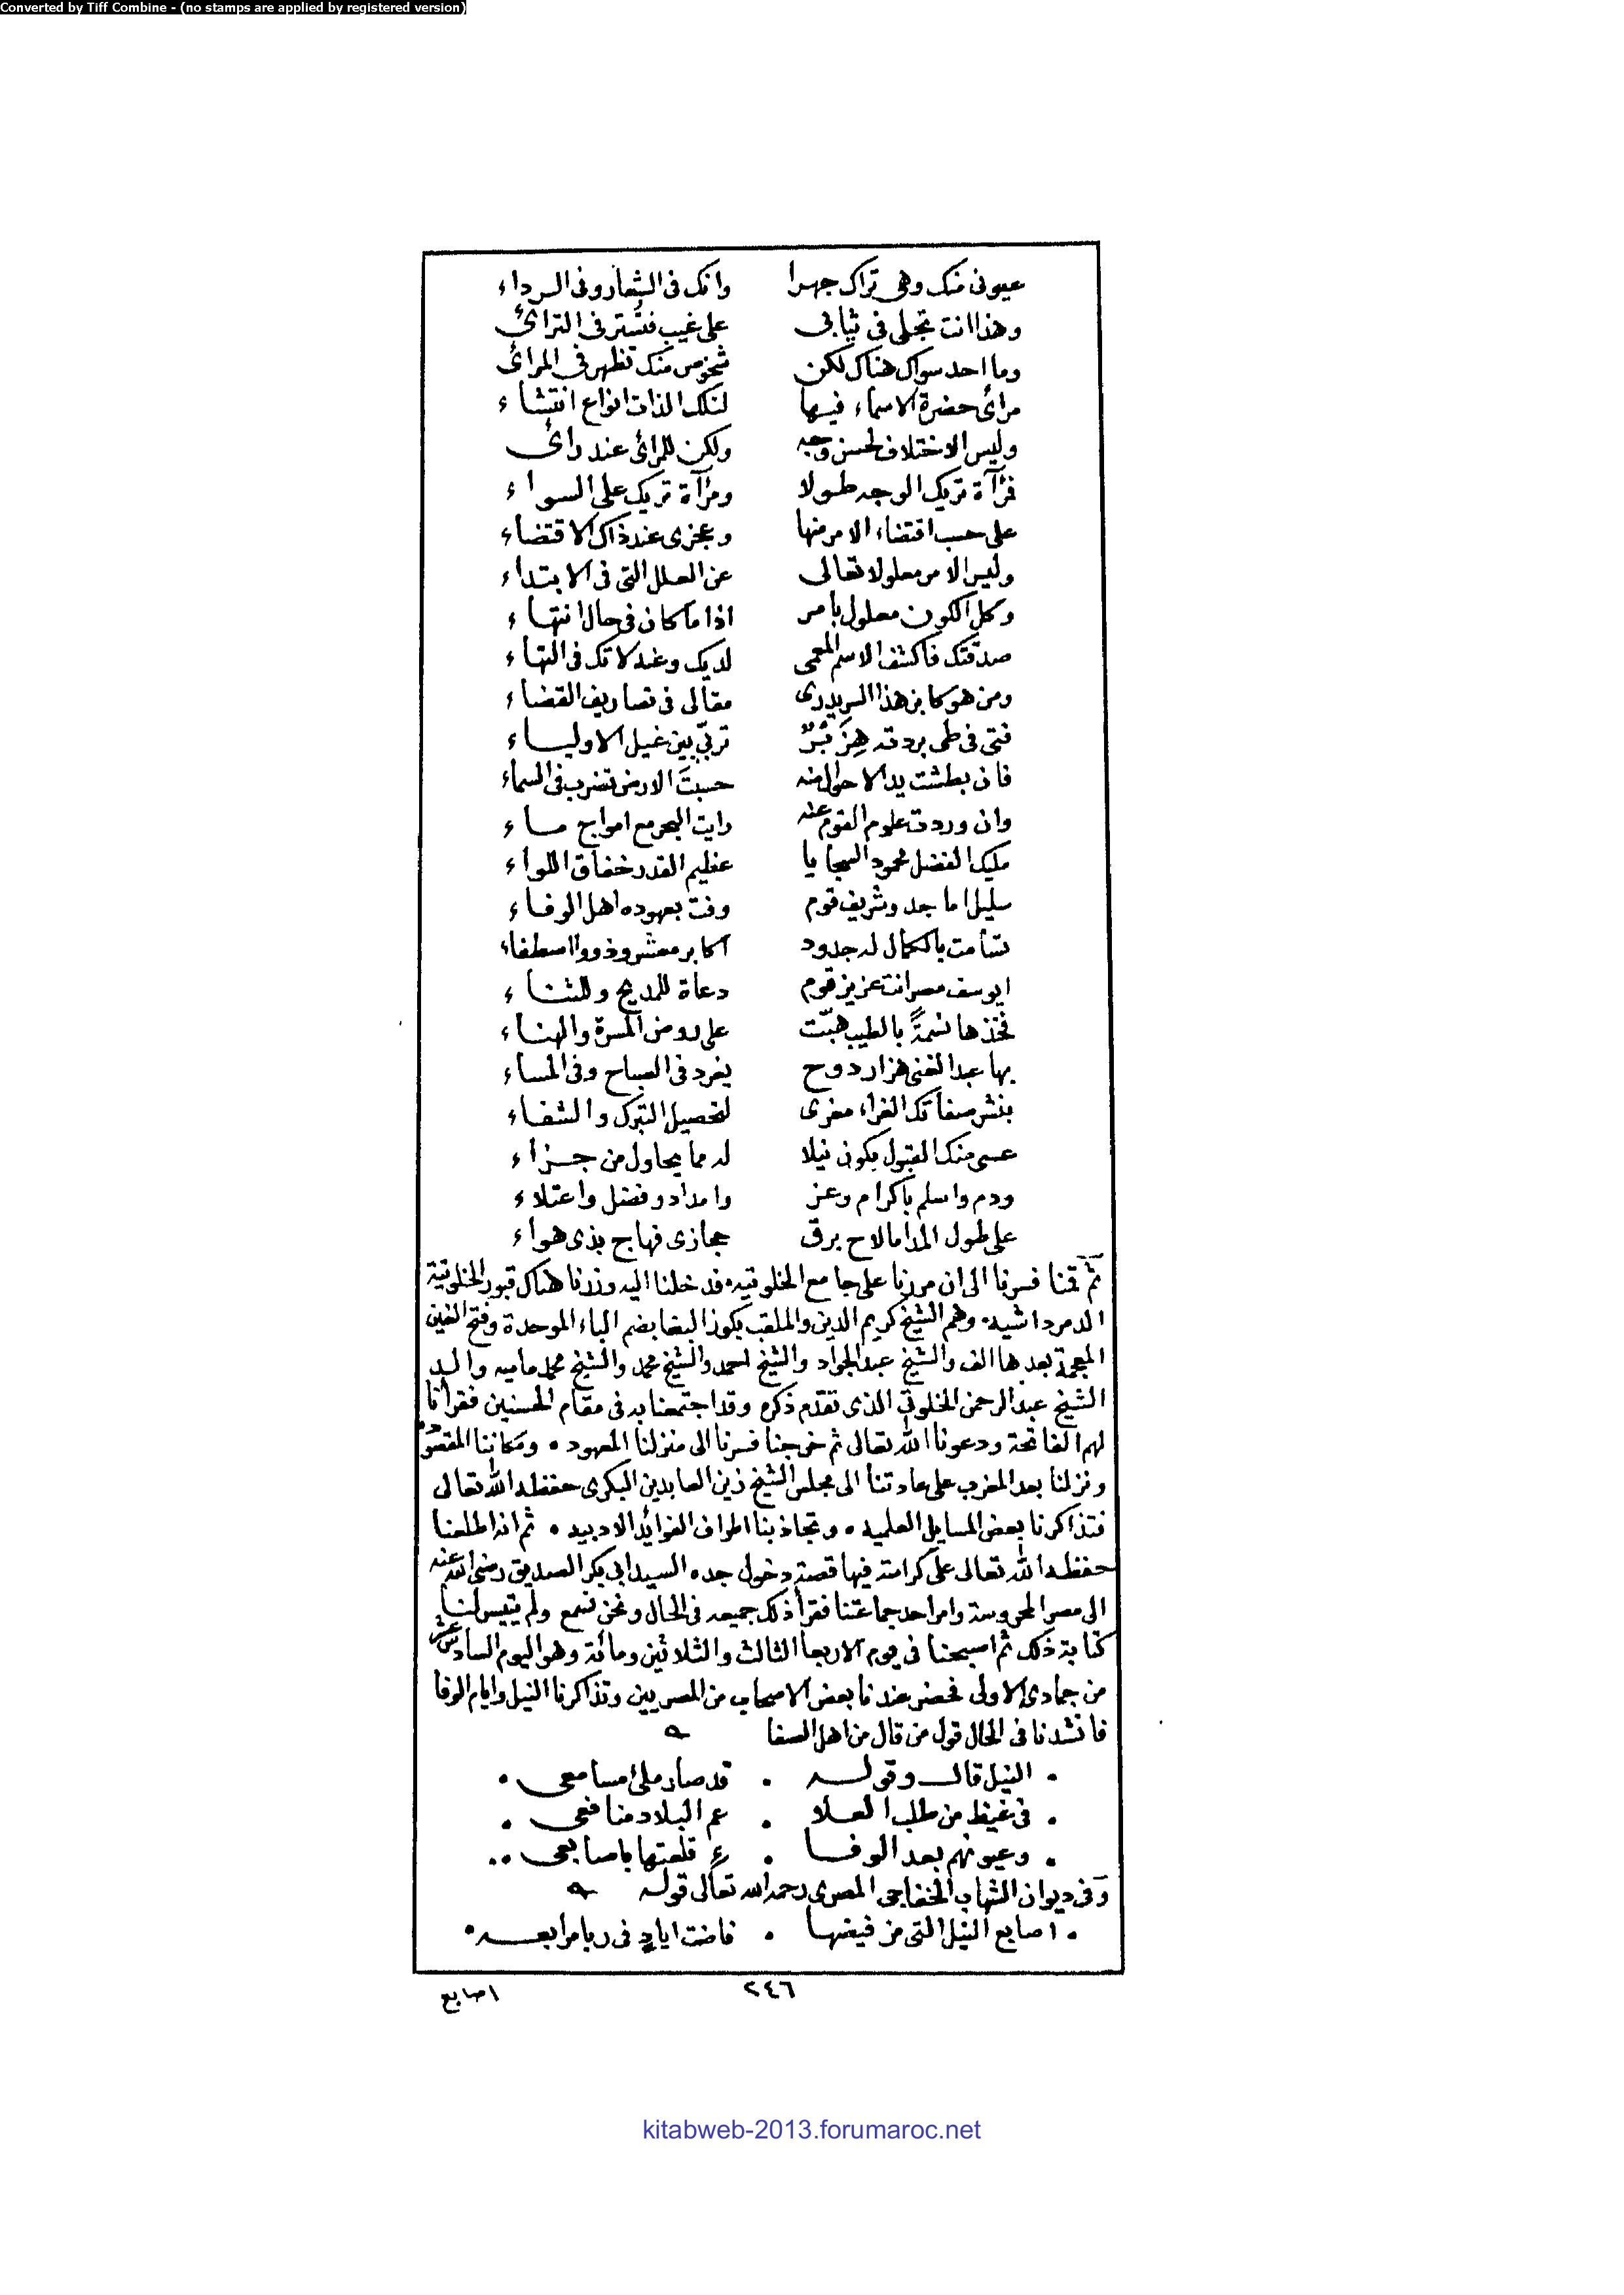 Converted by Tiff Combine - (no stamps are applied by registered version)
عيونى منك وهى تراك جهرا وانك فى الشعار وفى الرداء
وهذا انت تجلى فى ثيابى على غيب فتستر فى الترائى
وما احد سواك هناك لكن شخوص منك تظهر فى المرائى
مرائى حضرة الاسماء فيها لتلك الذات انواع انتشاء
وليس الاختلاف لحسن وجه ولكن للمرائى عند رائى
فمرآة تريك الوجه طولا ومرآة تريك على السواء
على حسب اقتضاء الامر منها وعجزى عند ذاك الاقتضاء
وليس الامر معلولا تعالى عن العلل التى فى الابتداء
وكل الكون معلول بامر اذا ما كان فى حال انتهاء
صدقتك فاكشف الاسم المعمى لديك وعنه لا تك فى التهاء
ومن هو كابن هذا السر يدرى مقالى فى تصاريف القضاء
فتى فى طى بردته هزبر تربى بين غيل الاولياء
فان بطشت يد الاحوال منه حسبت الارض تضرب فى السماء
وان وردت علوم القوم عنه رايت البحر مع امواج ماء
مليك الفضل محمود السجايا عظيم القدر خفاق اللواء
سليل اماجد وشريف قوم وفت بعهوده اهل الوفاء
تسامت بالكمال له جدود اكابر معشر وذووا اصطفاء
ايوسف مصر انت عزيز قوم دعاة للمديح وللثناء
فخذها نسمة بالطيب هبت على روض المسرة والهناء
بها عبد الغنى هزار دوح يغرد فى الصباح وفى المساء
بنشر صفاتك الغراء مغرى لتحصيل التبرك والشفاء
عسى منك القبول يكون نيلا له مما يحاول من جزاء
ودم واسلم باكرام وعز وامداد وفضل واعتلاء
على طول المدا مالاح برق حجازى فهاج بذى هواء
ثم قمنا فسرنا الى ان مررنا على جامع الخلوتيه فدخلنا اليه وزرنا هناك قبور الخلوتية
الدمرداشيه وهم الشيخ كريم الدين والملقب بكوز البغا بضم الباء الموحدة وفتح الغين
المعجمة بعدها الف والشيخ عبد الجواد والشيخ احمد والشيخ محمد والشيخ محمد ماميه والد
الشيخ عبد الرحمن الخلوتى الذى تقدم ذكره وقد اجتمعنا به فى مقام الحسنين فقرأنا
لهم الفاتحة ودعونا الله تعالى ثم خرجنا فسرنا الى منزلنا المعهود • ومكاننا المقصود
ونزلنا بعد المغرب على عادتنا الى مجلس الشيخ زين العابدين البكرى حفظه الله تعالى
فتذاكرنا بعض المسايل العلميه • وتجاذبنا اطراف الفوائد الادبيه • ثم انه اطلعنا
حفظه الله تعالى على كراسة فيها قصة دخول جده السيد ابى بكر الصديق رضى الله عنه
الى مصر المحروسة وامر احد جماعتنا فقرأ ذلك جميعه فى الحال ونحن نسمع ولم يتيسر لنا
كتابة ذلك ثم اصبحنا فى يوم الاربعا الثالث والثلاثين ومائة وهو اليوم السادس عشر
من جمادى الاولى فحضر عندنا بعض الاصحاب من المصريين وتذاكرنا النيل وايام الوفا
فانشدنا فى الحال قول من قال من اهل الصفا
• النيل قال وقوله • قد صار ملئ مسامعى •
• فى غيظ من طلب العلا • عم البلاد منافعى •
• وعيونهم بعد الوفا • قلعتها باصابعى ••
وفى ديوان الشهاب الخفاجى المصرى رحمه الله تعالى قوله
• اصابع النيل التى من فيضها • فاضت اياد فى ربا مرابعه •
٢٤٦
اصابع
kitabweb-2013.forumaroc.net